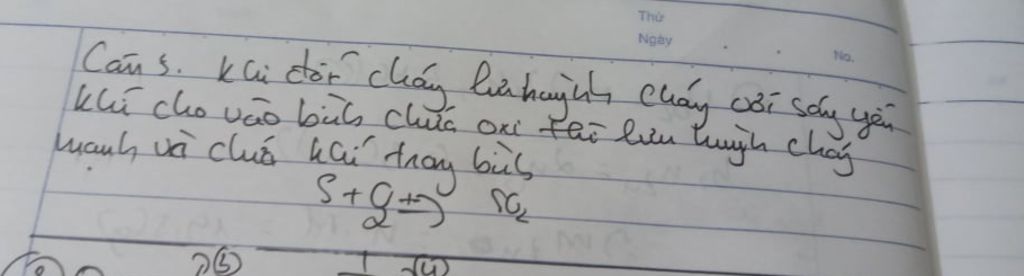 Thứ
Ngày
No.
Câu 5. Khi đốt cháy lưu huỳnh cháy với yếu
khi cho vào bình chứa oxi thì lưu huỳnh cháy
mạnh và chứa khí trong bình
S + O2 → SO2